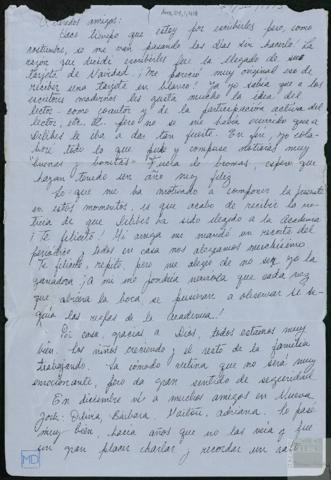 Queridos amigos:
Hace tiempo que estoy por escribirles pero, como
costumbre, se me van pasando los días sin hacerlo. La
razón que decidí escribirles fue la llegada de su
tarjeta de Navidad. ¡Me pareció muy original eso de
recibir una tarjeta en blanco! Ya yo sabía que a los
escritores modernos les gusta mucho la idea del
lector como coautor y de la participación activa del
lector, etc. etc. pero no se me había ocurrido que a
Delibes le iba a dar tan fuerte. En fin, yo cola-
boré todo lo que pude y compuse noticias muy
"buenas y bonitas". Fuera de bromas, espero que
hayan tenido un año muy feliz.
Lo que me ha motivado a componer la presente
en estos momentos, es que acabo de recibir la no-
ticia de que Delibes ha sido llegado a la Academia
¡Te felicito! Mi amiga me mandó un recorte del
periódico y todos en casa nos alegramos muchísimo.
Te felicito, repito, pero me alegro de no ser yo la
ganadora; ¡A mí me pondría nerviosa que cada vez
que abriera la boca, se pusieran a observar si se-
guía las reglas de la Academia!
Por casa, gracias a Dios, todos estamos muy
bien. Los niños creciendo y el resto de la familia
trabajando. La cómoda rutina que no será muy
emocionante, pero da gran sentido de seguridad.
En diciembre vi a muchos amigos en Nueva
York: Bárbara, Adriana. Lo pasé
muy bien, hacía años que no las veía y fue
un gran placer charlar y recordar un rato
MD